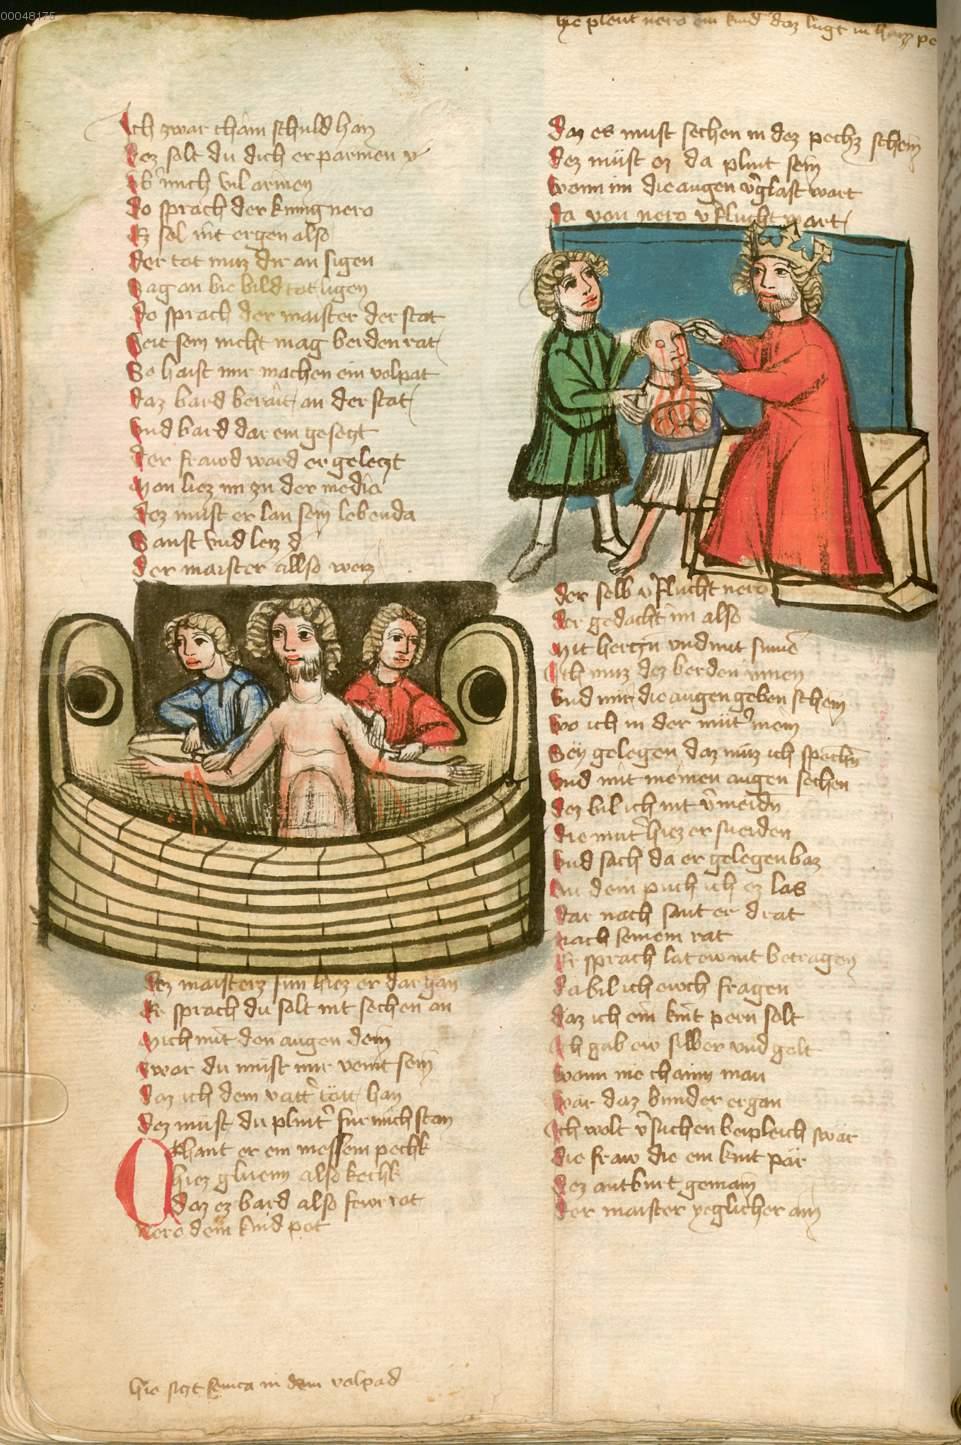 00048175
hie plent nero ein kind daz lugt in ham pe
Ich zwar cham schuld han
dez solt du dich erparmen
vb mich vil armen
do sprach der kunig nero
Ez sol nit ergen also
der tot muz dir an sigen
Sag an bie bild tot ligen
do sprach der maister der stat
Seit sein nicht mag berden rat
So haist mir machen ein volpat
daz bard berait an der stat
vnd bard dar ein gesetzt
der frawd ward er geletzt
Man liez im zu der media
dez must er lan sein lebenda
Sanst vnd letz
der maister allso weiz
Dez maisterz sun hiez er dar gan
Er sprach du solt nit sechen an
Mich mit den augen dein
zwar du must mir veint sein
daz ich dem vatter tött han
dez must du plinter fur mich stan
Zehant er ein messein pechk
hiez gluen also kechk
daz ez bard also fewr rot
Nero dem kind pot
hie sitzt seneca in dem volpad
daz es must sechen in dez pechz schein
dez müst ez da plint sein
wann im die augen verglast wart
da von nero verflucht wart
der selb verflucht nero
der gedacht im also
Mit herczn vnd mit sinne
Ich muz dez berden innen
vnd mir die augen geben schein
wo ich in der muter mein
Sey gelegen daz muz ich spachn
vnd mit meinen augen sechen
dez bil ich nit vermeidn
die muter hiez er sneiden
vnd sach da er gelegen baz
An dem puch ich ez las
dar nach sant er drat
nach seinem rat
Er sprach lat ew nit betragen
da bil ich ewch fragen
daz ich ein kint pern solt
Ich gab ew silber vnd golt
wann nie chainn man
war daz bunder ergan
Ich wolt versuchen beipleich swar
die fraw die ein kint pär
dez antburt gemain
der maister yeglicher ain